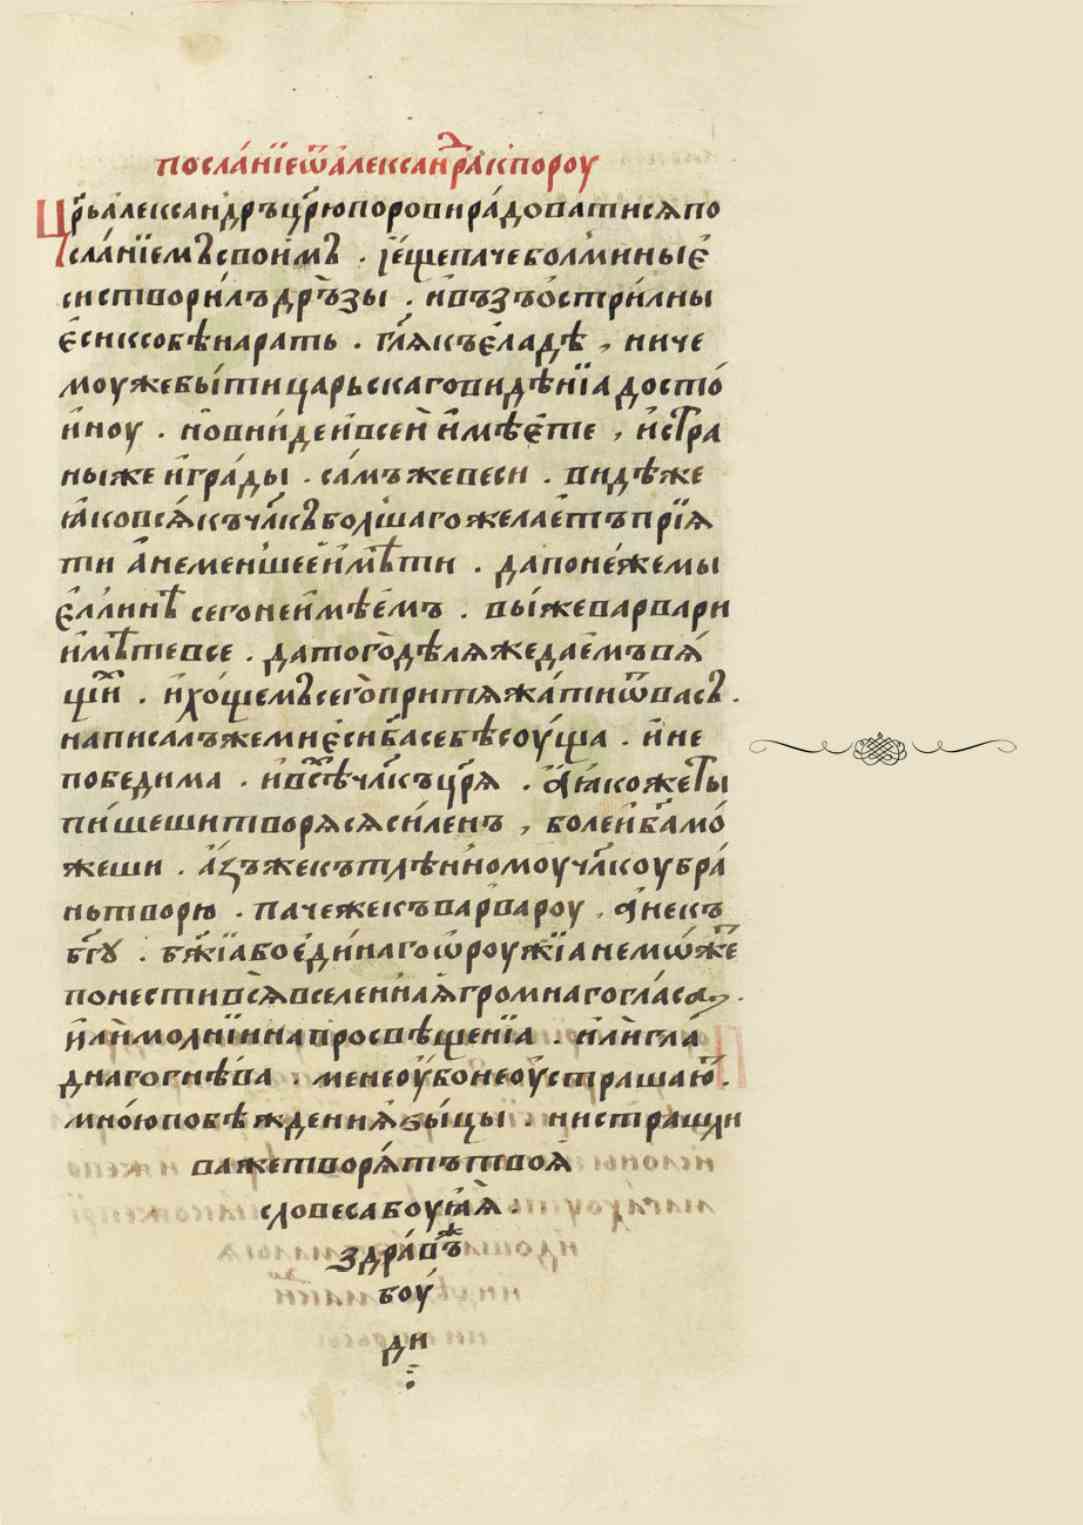 посла́нїе ѿ а́леѯан҇дра к пороу
Цр҃ь а́леѯандръ цр҃ю порови ра́доватися по
сла́нїемъ свои́мъ . і҆ е҆ще паче болми ны е҆
си створи́лъ дръ́зы . и҆ въз̾о́стри́л ны
е҆си к собѣ на рать . гл҃я къ е҆ладѣ , ниче
моуже бы́ти царьскаго видѣнїа досто́
и҆ноу . но вни́де и҆ всеи̇ и҆мѣе҆те , и҆ стра
ны же и҆ гра́ды . са́мъ же веси . видѣ же
ꙗ҆ко вся́къ чл҃къ болшаго желае҆тъ прїя
ти а҆ не меншее и҆мѣти . да поне́же мы
е҆ллинѣ сего не и҆мѣе́мъ . вы́ же варвари
и҆мѣте все . да того̀ дѣля же дае́мъ вя́
щи҆ . и҆ хо́щемъ сего̀ притяжа́ти ѿ васъ .
написалъ же ми е҆си ба҃ себѣ соу́ща . и҆ не
победима . и҆ всѣ чл҃къ цр҃я . а҆ ꙗ҆коже ты
пи́шеши творяся си́ленъ , болеи҆ ба҃ мо́
жеши . а҆зъ же къ тлѣн̾номоу чл҃коу бра́
нь творю . паче же къ варвароу . а҆ не къ
бг҃ꙋ . бж҃їа бо е҆ди́наго ѡ҆роужїа не мѡ́же
понести вся̀ вселен̾ная̀ громнаго гла́са .
и҆лѝ молнїинна просвѣщенїа . и҆лѝ гла́
днаго гнѣ́ва . мене оу҆бо не оу҆страшаю҆т .
мно́ю повѣждени я҆зы́цы . ни страшли
ва же творя́тъ твоя̀
словеса боуꙗ҆я̀ .
здра́въ ж
боу́
ди